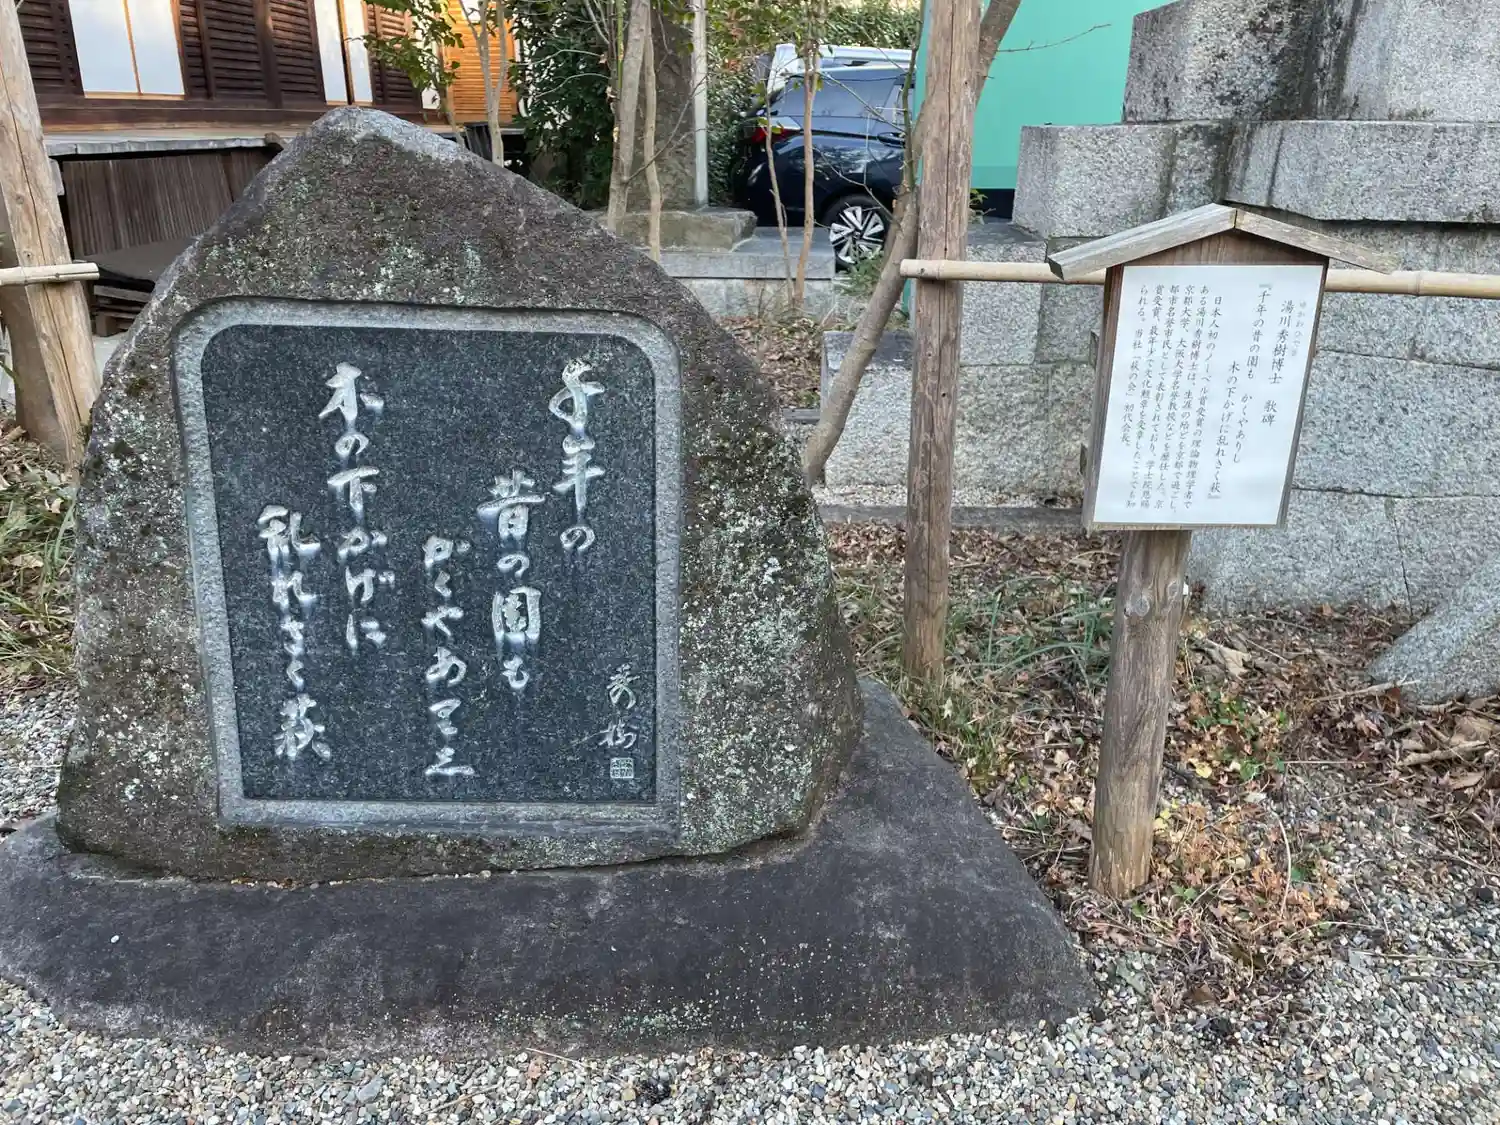 千年の
昔の園も
かくやありし
木の下かげに
乱れさく萩
秀樹
ゆかわひでき
湯川秀樹博士　歌碑
『千年の昔の園も　かくやありし
木の下かげに乱れさく萩』
日本人初のノーベル賞受賞の理論物理学者で
ある湯川秀樹博士は、生涯の殆どを京都で過ごし、
京都大学、大阪大学名誉教授などを歴任した。京
都市名誉市民として表彰されており、学士院恩賜
賞受賞、最年少で文化勲章を受章したことでも知
られる。当社「萩の会」初代会長。